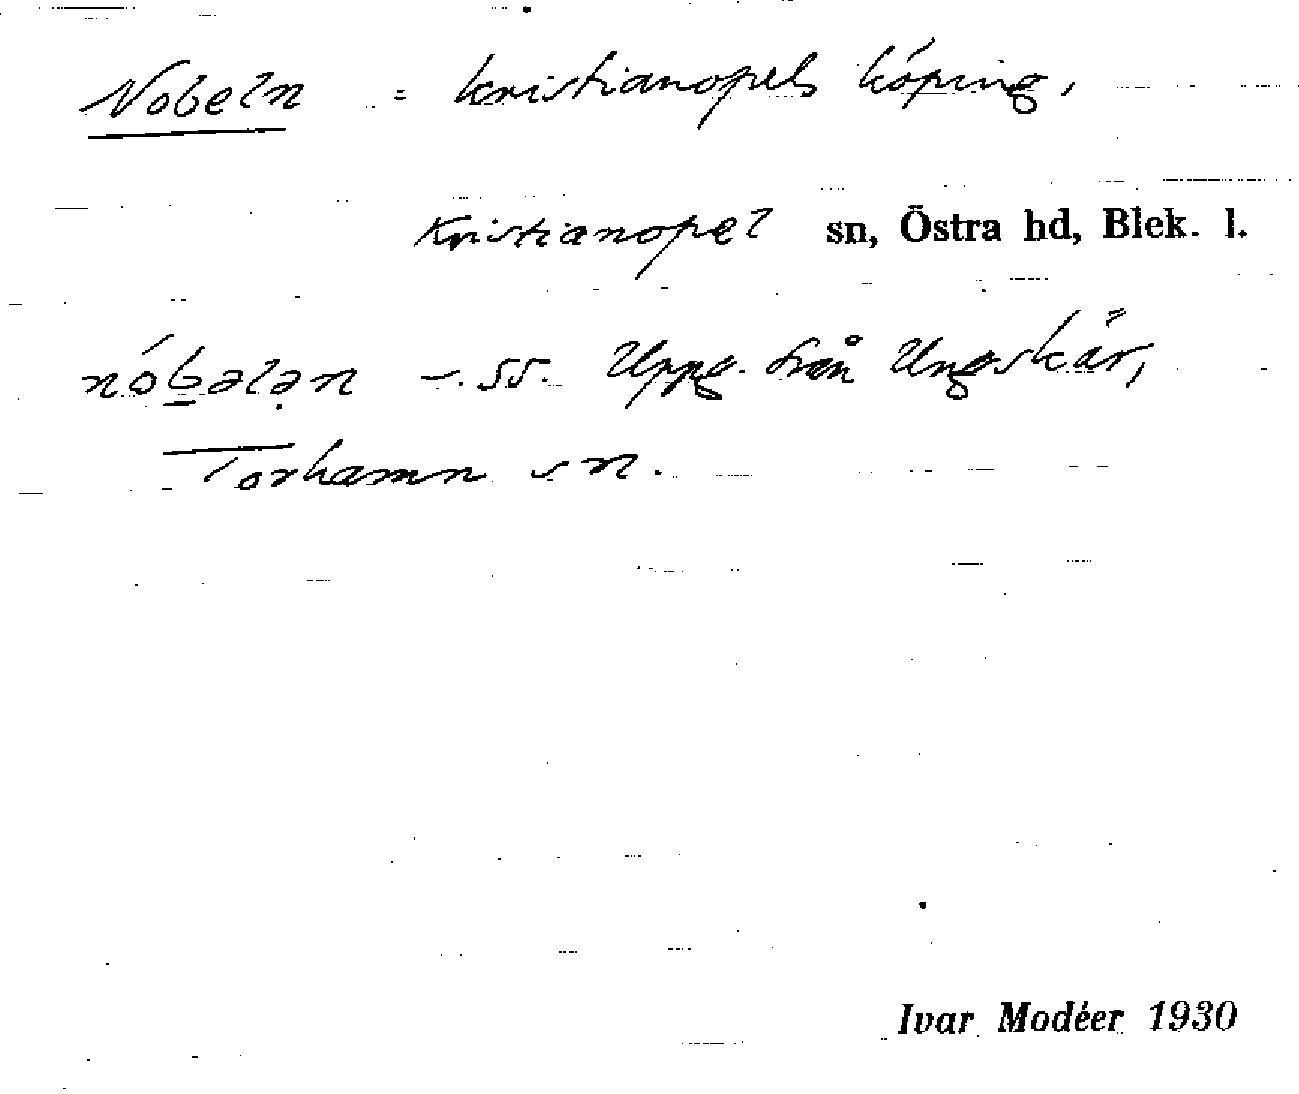 Nobeln = Kristianopels köping,
Kristianopel sn, Östra hd, Blek. l.
nóbələn –. ss. Uppg. från Ungskär,
Torhamn sn.
Ivar Modéer 1930